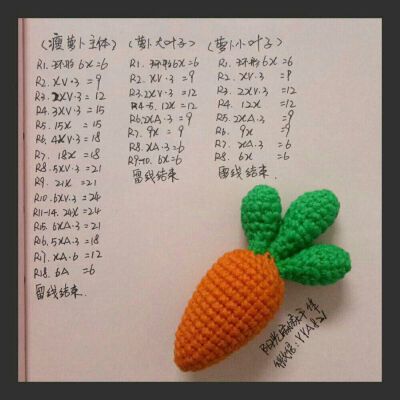 (瘦萝卜主体)
R1. 环形6X=6
R2. XV·3=9
R3. 2XV·3=12
R4. 3XV·3=15
R5. 15X=15
R6. 4XV·3=18
R7. 18X=18
R8. 5XV·3=21
R9. 21X=21
R10. 6XV·3=24
R11-14. 24X=24
R15. 6XA·3=21
R16. 5XA·3=18
R17. XA·6=12
R18. 6A=6
留线结束.
(萝卜大叶子)
R1. 环形6X=6
R2. XV·3=9
R3. 2XV·3=12
R4-5. 12X=12
R6. 2XA·3=9
R7. 9X=9
R8. XA·3=6
R9-10. 6X=6
留线结束
(萝卜小叶子)
R1. 环形6X=6
R2. XV·3=9
R3. 2XV·3=12
R4. 12X=12
R5. 2XA·3=9
R6. 9X=9
R7. XA·3=6
R8. 6X=6
留线结束.
手作
微信:YYA821